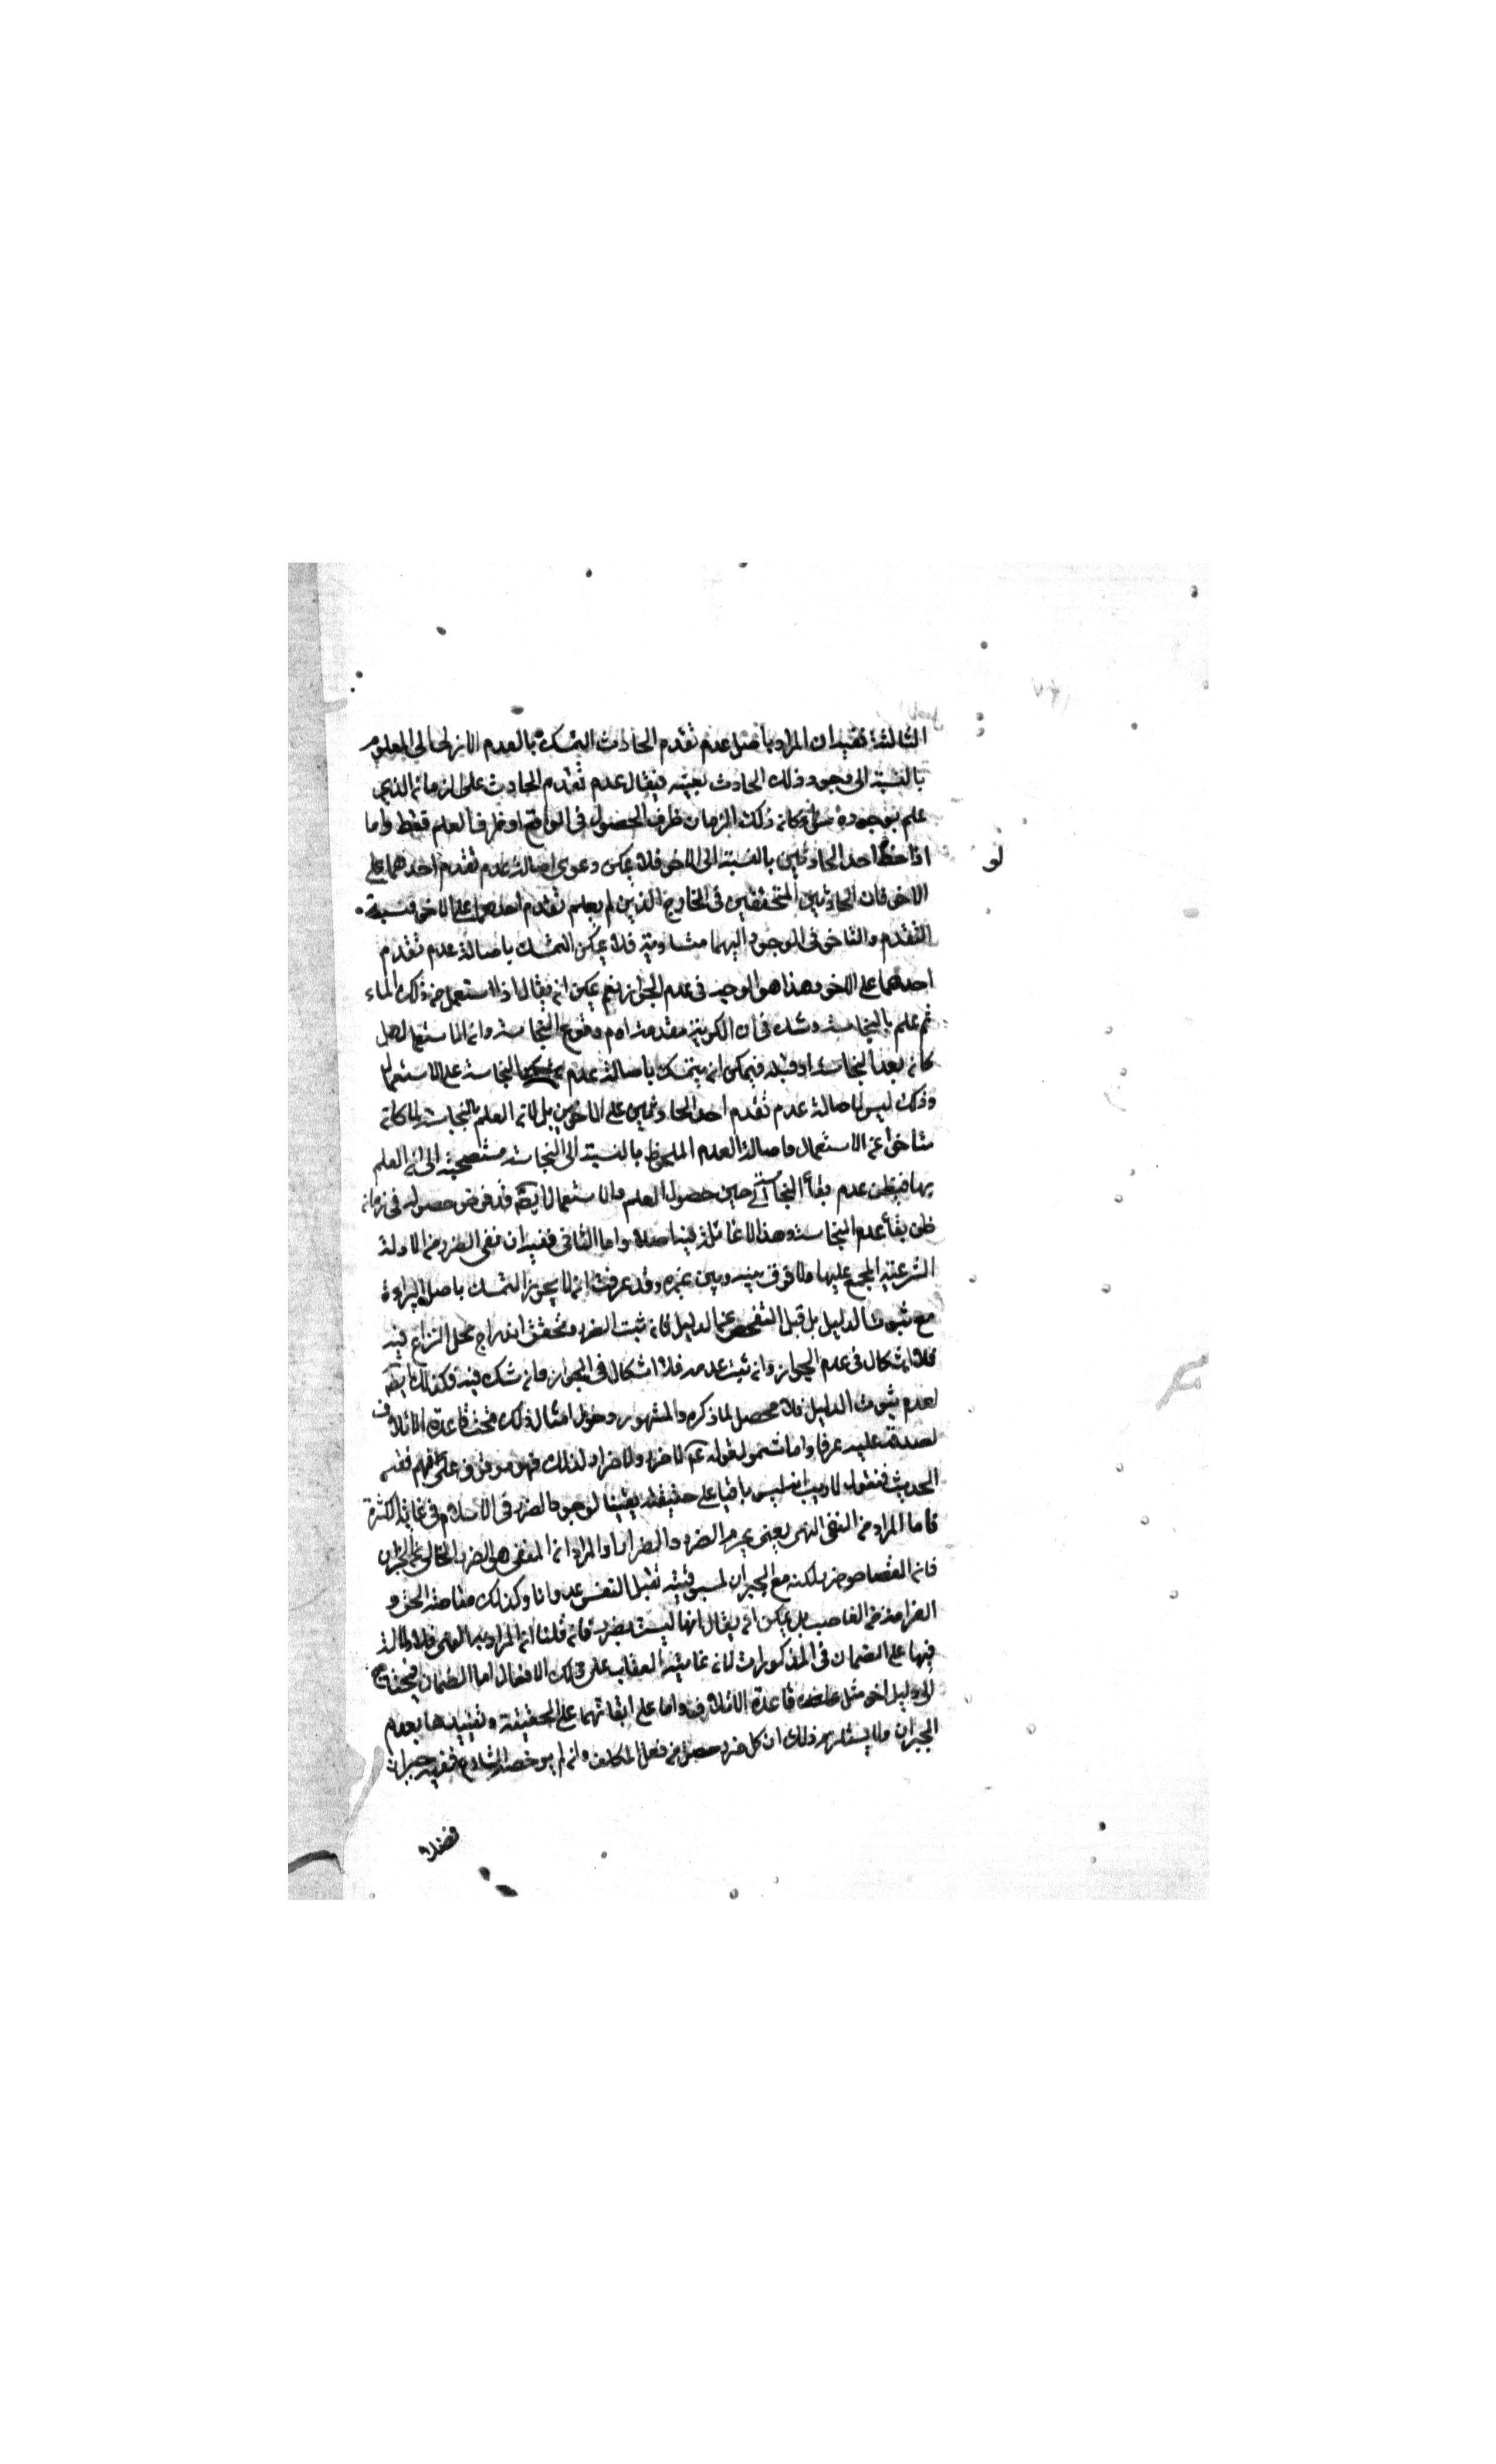 الثالثة ففيه ان المراد باصل عدم تقدم الحادث التمسك بالعدم الازلى الحالى المعلوم
بالنسبة الى وجود ذلك الحادث بعينه فيقال عدم تقدم الحادث على زمانه الذى
علم بوجوده سواء كان ذلك الزمان ظرف الحصول فى الواقع او ظرف العلم فقط واما
اذا حظ احد الحادثين بالنسبة الى الاخر فلا يمكن دعوى اصالة عدم تقدم احدهما على
لو
الاخر فان الحادثين المتحققين فى الخارج الذين لم يعلم تقدم احدهما على الاخر فنسبة
التقدم والتاخر فى الوجود اليهما متساوية فلا يمكن التمسك باصالة عدم تقدم
احدهما على الاخر وهذا هو الوجه فى عدم الجواز نعم يمكن ان يقال اذا استعمل من ذلك الماء
ثم علم بالنجاسة وشك فى ان الكرية مقدمة ام وقوع النجاسة وان الاستعمال هل
كان بعد النجاسة او قبله فيمكن ان يتمسك باصالة عدم النجاسة على الاستعمال
وذلك ليس لاصالة عدم تقدم احد الحادثين على الاخر بل لان العلم بالنجاسة لما كان
متاخرا عن الاستعمال واصالة العدم الملحوظ بالنسبة الى النجاسة مستصحبة الى ان العلم
بها فيظن عدم بقاء النجاسة الى حين حصول العلم والاستعمال ايضا قد فرض حصوله فى زمان
ظن بقاء عدم النجاسة وهذا لا غائلة فيه اصلا واما الثانى ففيه ان نفى الضرر من الادلة
الشرعية المجمع عليها ولا فرق بينه وبين غيره وقد عرفت انه لا يجوز التمسك باصل البراءة
مع ثبوت الدليل بل قبل التفحص عن الدليل فان ثبت الضرر وتحقق اندراج محل النزاع فيه
فلا اشكال فى عدم الجواز وان ثبت عدمه فلا اشكال فى الجواز وان شك فيه وكذلك ايضا
لعدم ثبوت الدليل فلا محصل لما ذكره والمشهور دخول امثال ذلك تحت قاعدة الاتلاف
لصدقه عليه عرفا واما شمول قوله عم لا ضرر ولا ضرار لذلك فهو موقوف على فهم فقه
الحديث فنقول لا ريب انه ليس باقيا على حقيقته يقينا لوجود الضرر فى الاسلام فى غاية الكثرة
فاما المراد من النفى النهى يعنى يحرم الضرر والضرار او المراد ان المنفى هو الضرر الخالى عن الجبران
فان القصاص ضرر لكنه مع الجبران لمسبوقيته بقتل النفس عدوانا وكذلك مقاصة الحق و
الغرامة من الغاصب بل يمكن ان يقال انها ليست بضرر فان قلنا ان المراد به النهى فلا دلالة
فيها على الضمان فى المذكورات لان غايته العقاب على تلك الافعال اما الضمان فيحتاج
الى دليل اخر مثل قاعدة الاتلاف واما على ابقائهما على الحقيقة وتقييدها بعدم
الجبران ولا يستلزم ذلك ان كل ضرر حصل من فعل المكلف وان لم يرخصه الشارع ففيه جبران
فضلا